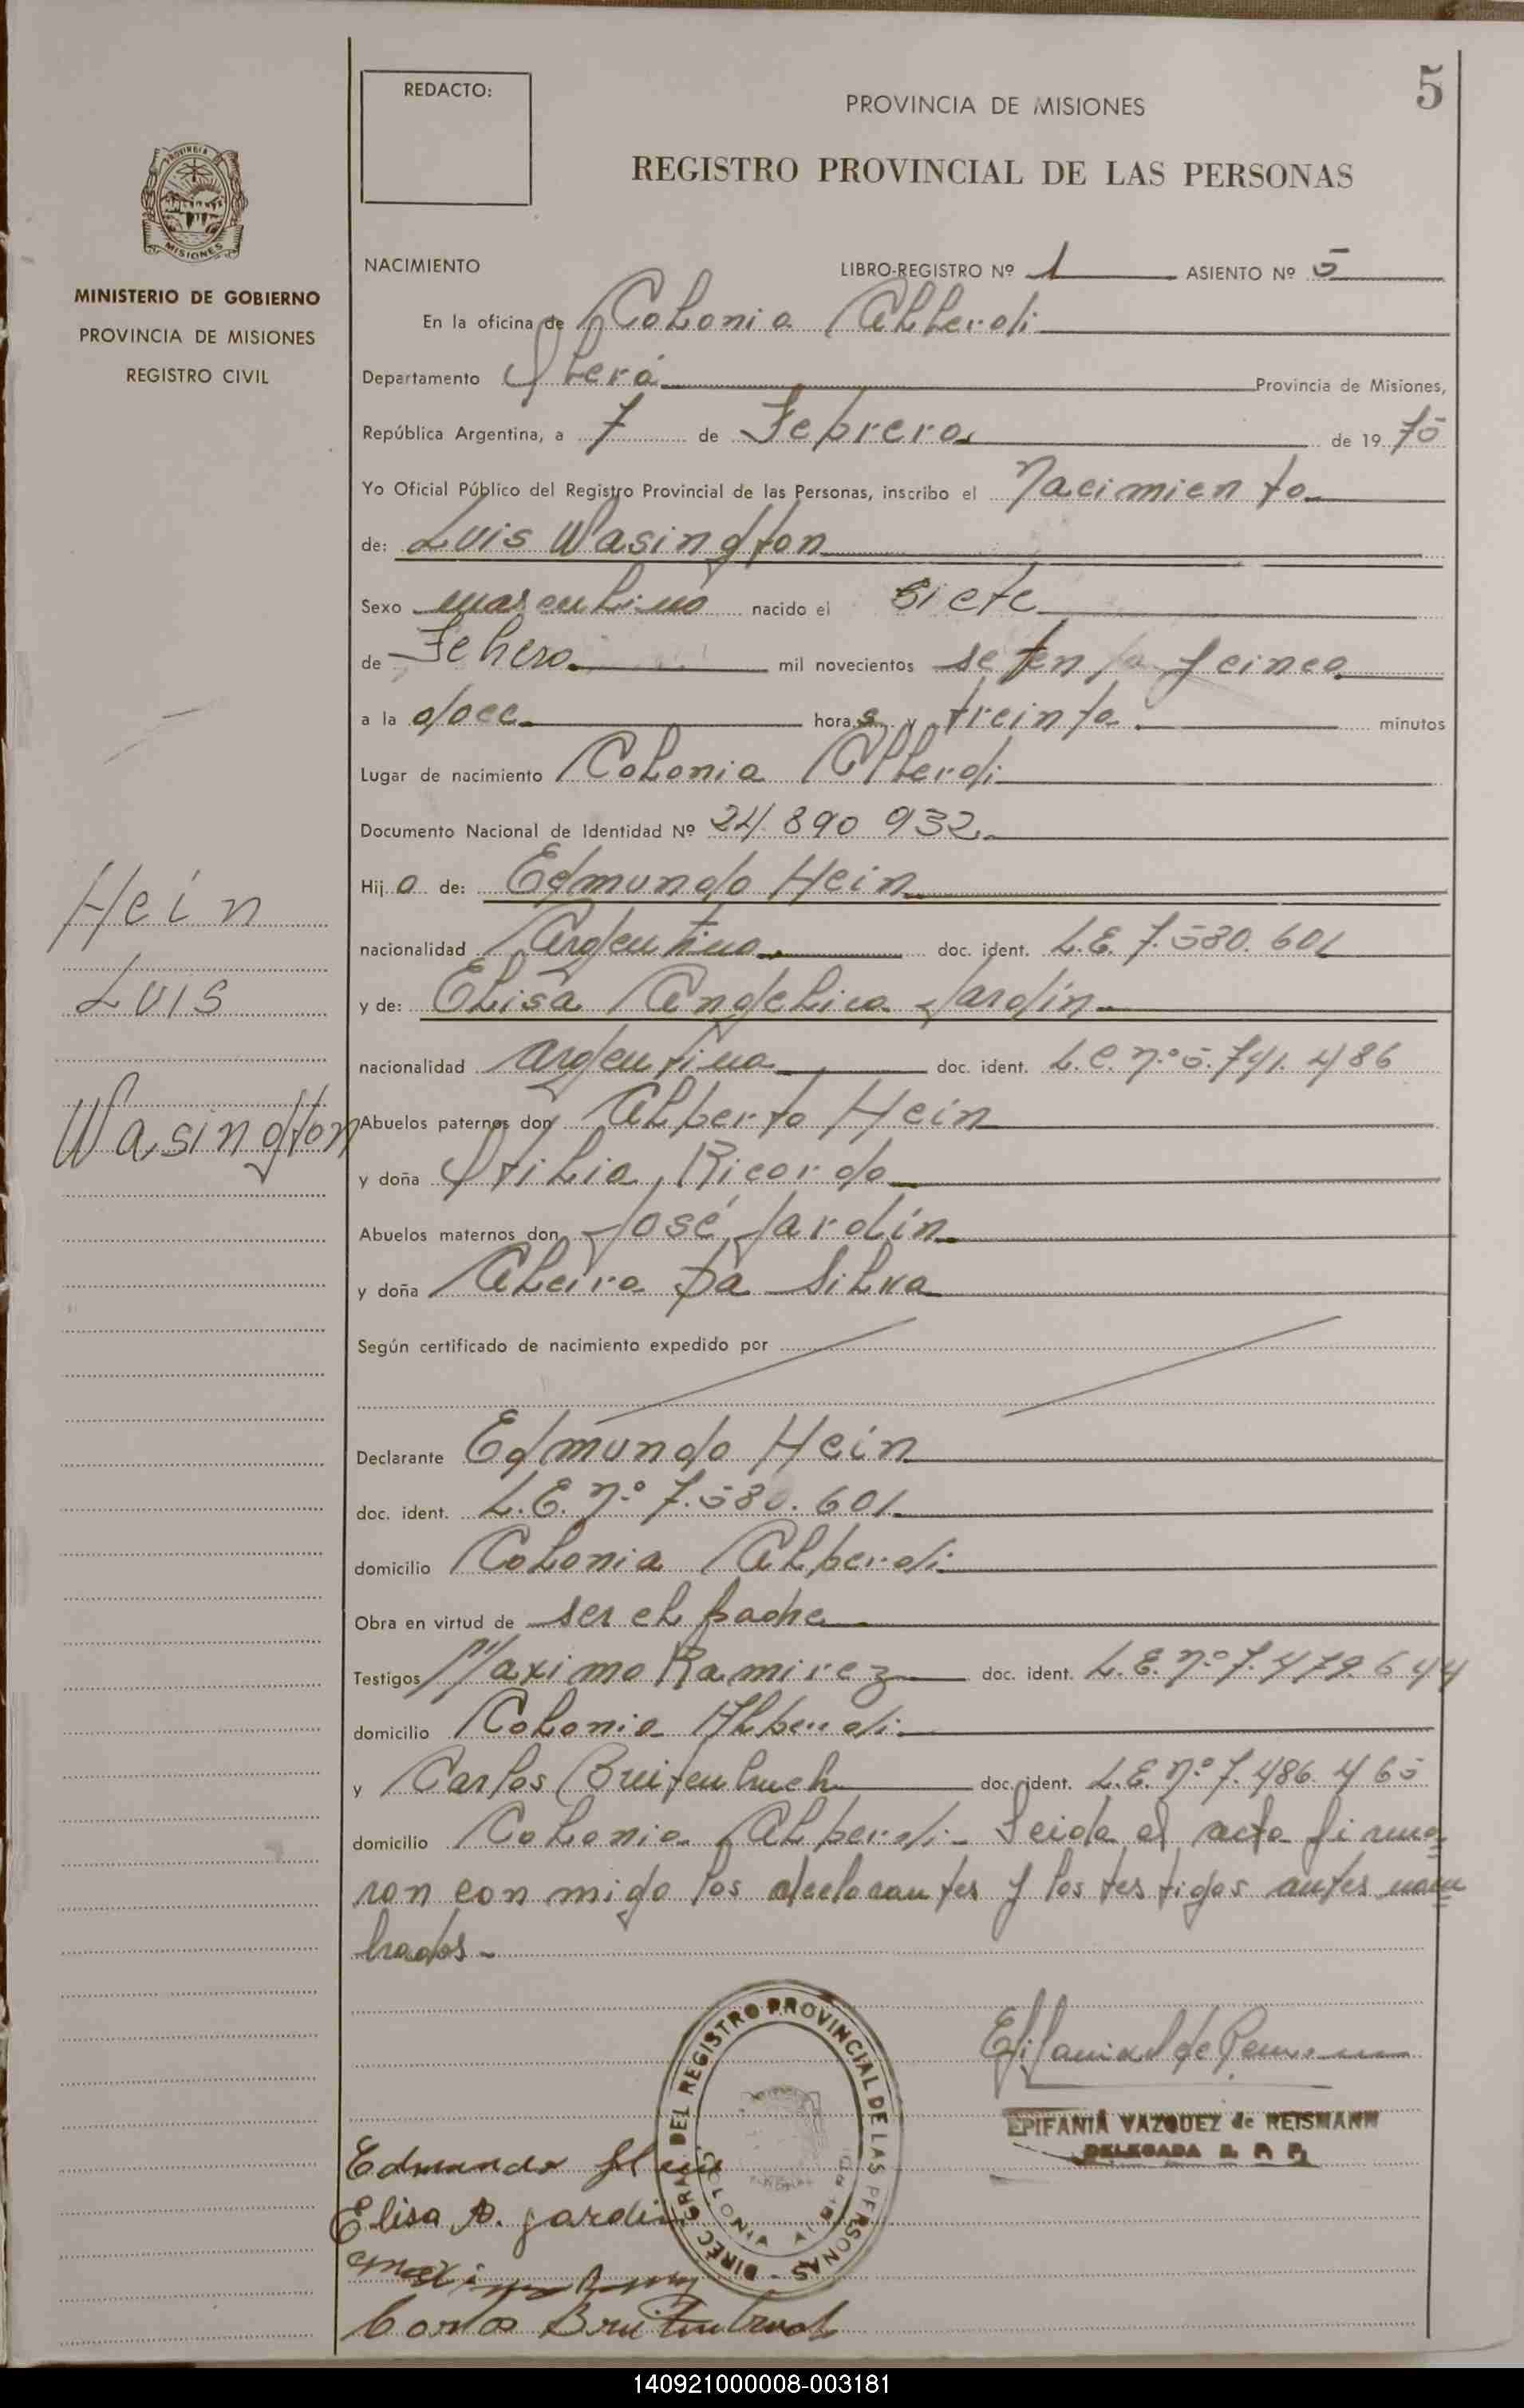 5
REDACTO:
PROVINCIA DE MISIONES
REGISTRO PROVINCIAL DE LAS PERSONAS
PROVINCIA
MISIONES
MINISTERIO DE GOBIERNO
PROVINCIA DE MISIONES
REGISTRO CIVIL
NACIMIENTO LIBRO-REGISTRO Nº 1 ASIENTO Nº 5
En la oficina de Colonia Alberdi
Departamento Oberá Provincia de Misiones,
República Argentina, a 7 de Febrero de 1975
Yo Oficial Público del Registro Provincial de las Personas, inscribo el Nacimiento
de: Luis Wasington
Sexo masculino nacido el siete
de Febrero mil novecientos setenta y cinco
a la doce horas y treinta minutos
Lugar de nacimiento Colonia Alberdi
Documento Nacional de Identidad Nº 24 890 932
Hijo de: Edmundo Hein
nacionalidad Argentina doc. ident. L.E. 7.580.601
y de: Elisa Angelica Jardín
nacionalidad argentina doc. ident. L.C. nº 5.741.486
Abuelos paternos don Alberto Hein
y doña Otilia Ricardo
Abuelos maternos don José Jardín
y doña Alcira Da Silva
Según certificado de nacimiento expedido por
Declarante Edmundo Hein
doc. ident. L.E. nº 7.580.601
domicilio Colonia Alberdi
Obra en virtud de ser el padre
Testigos Maximo Ramirez doc. ident. L.E. nº 7.479.644
domicilio Colonia Alberdi
y Carlos Breitenbruch doc. ident. L.E. nº 7.486.465
domicilio Colonia Alberdi- Leida el acta firma
ron con migo los declarantes y los testigos antes nom
brados-
Hein
Luis
Wasington
DIREC. GRAL. DEL REGISTRO PROVINCIAL DE LAS PERSONAS
EPIFANIA VAZQUEZ de REISMANN
DELEGADA R P P
Edmundo Hein
Elisa A. Jardin
140921000008-003181